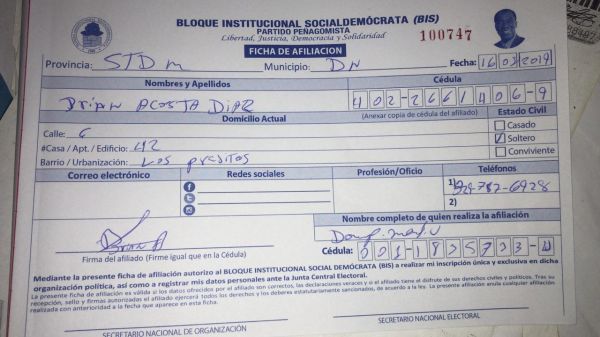 BLOQUE INSTITUCIONAL SOCIALDEMÓCRATA (BIS)
PARTIDO PEÑAGOMISTA
Libertad, Justicia, Democracia y Solidaridad
100747
FICHA DE AFILIACION
Provincia: STDm Municipio: DN Fecha: 16/03/2019
Nombres y Apellidos Cédula
Brian ACOSTA DIAZ 402-2661406-9
Domicilio Actual (Anexar copia de cédula del afiliado) Estado Civil
Calle: 6 Casado
#Casa / Apt. / Edificio: 42 Soltero
Barrio / Urbanización: Los Conviviente
Correo electrónico Redes sociales Profesión/Oficio Teléfonos
1) 829-782-6928
2)
Nombre completo de quien realiza la afiliación
Firma del afiliado (Firme igual que en la Cédula) Cédula: 001-1835723-4
Mediante la presente ficha de afiliación autorizo al BLOQUE INSTITUCIONAL SOCIAL DEMÓCRATA (BIS) a realizar mi inscripción única y exclusiva en dicha
organización política, así como a registrar mis datos personales ante la Junta Central Electoral.
La presente ficha de afiliación es válida si los datos ofrecidos por el afiliado son correctos, las declaraciones veraces y si el afiliado tiene el disfrute de sus derechos civiles y políticos. Tras su
recepción, sello y firmas autorizadas el afiliado ejercerá todos los derechos y los deberes estatutariamente sancionados, de acuerdo a la ley. La presente afiliación anula cualquier afiliación
realizada con anterioridad a la fecha que aparece en esta ficha.
SECRETARIO NACIONAL DE ORGANIZACIÓN SECRETARIO NACIONAL ELECTORAL